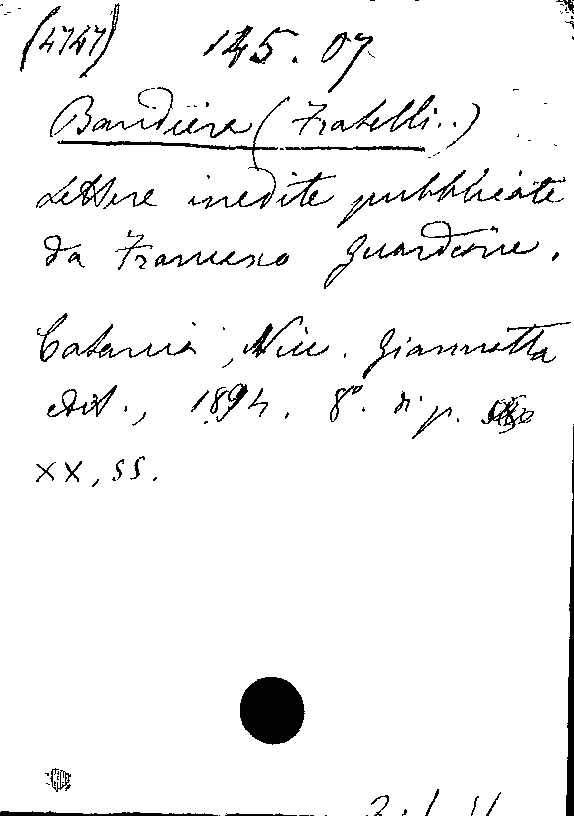 (4747) 145.07
Bandiera (Fratelli..)
Lettere inedite pubblicate
da Francesco Guardione.
Catania, Nic. Giannotta
edit., 1894. 8º. di p.
XX, 55.